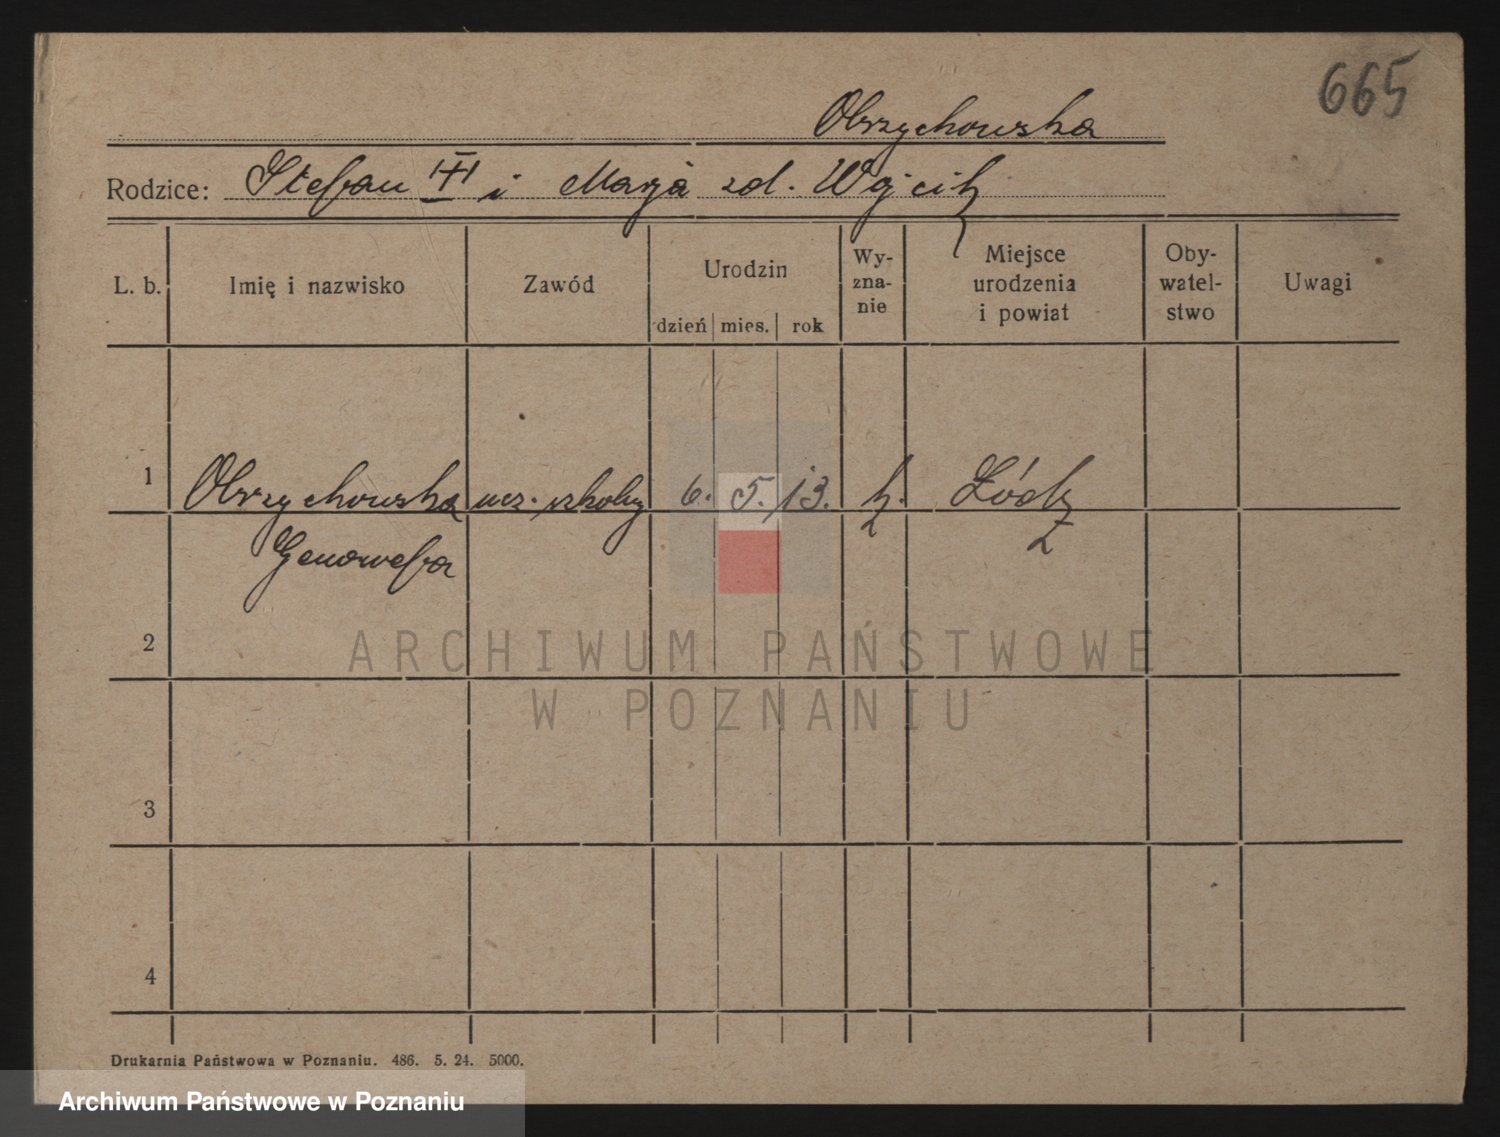 665
Olrzychowska
Rodzice: Stefan i Marja zd. Wójcik
L. b. Imię i nazwisko Zawód Urodzin dzień mies. rok Wy-zna-nie Miejsce urodzenia i powiat Oby-watel-stwo Uwagi
1 Olrzychowska ucz. szkolny 6. 5. 13. k. Łódź
Genowefa
2
ARCHIWUM PAŃSTWOWE
W POZNANIU
3
4
Drukarnia Państwowa w Poznaniu. 486. 5. 24. 5000.
Archiwum Państwowe w Poznaniu